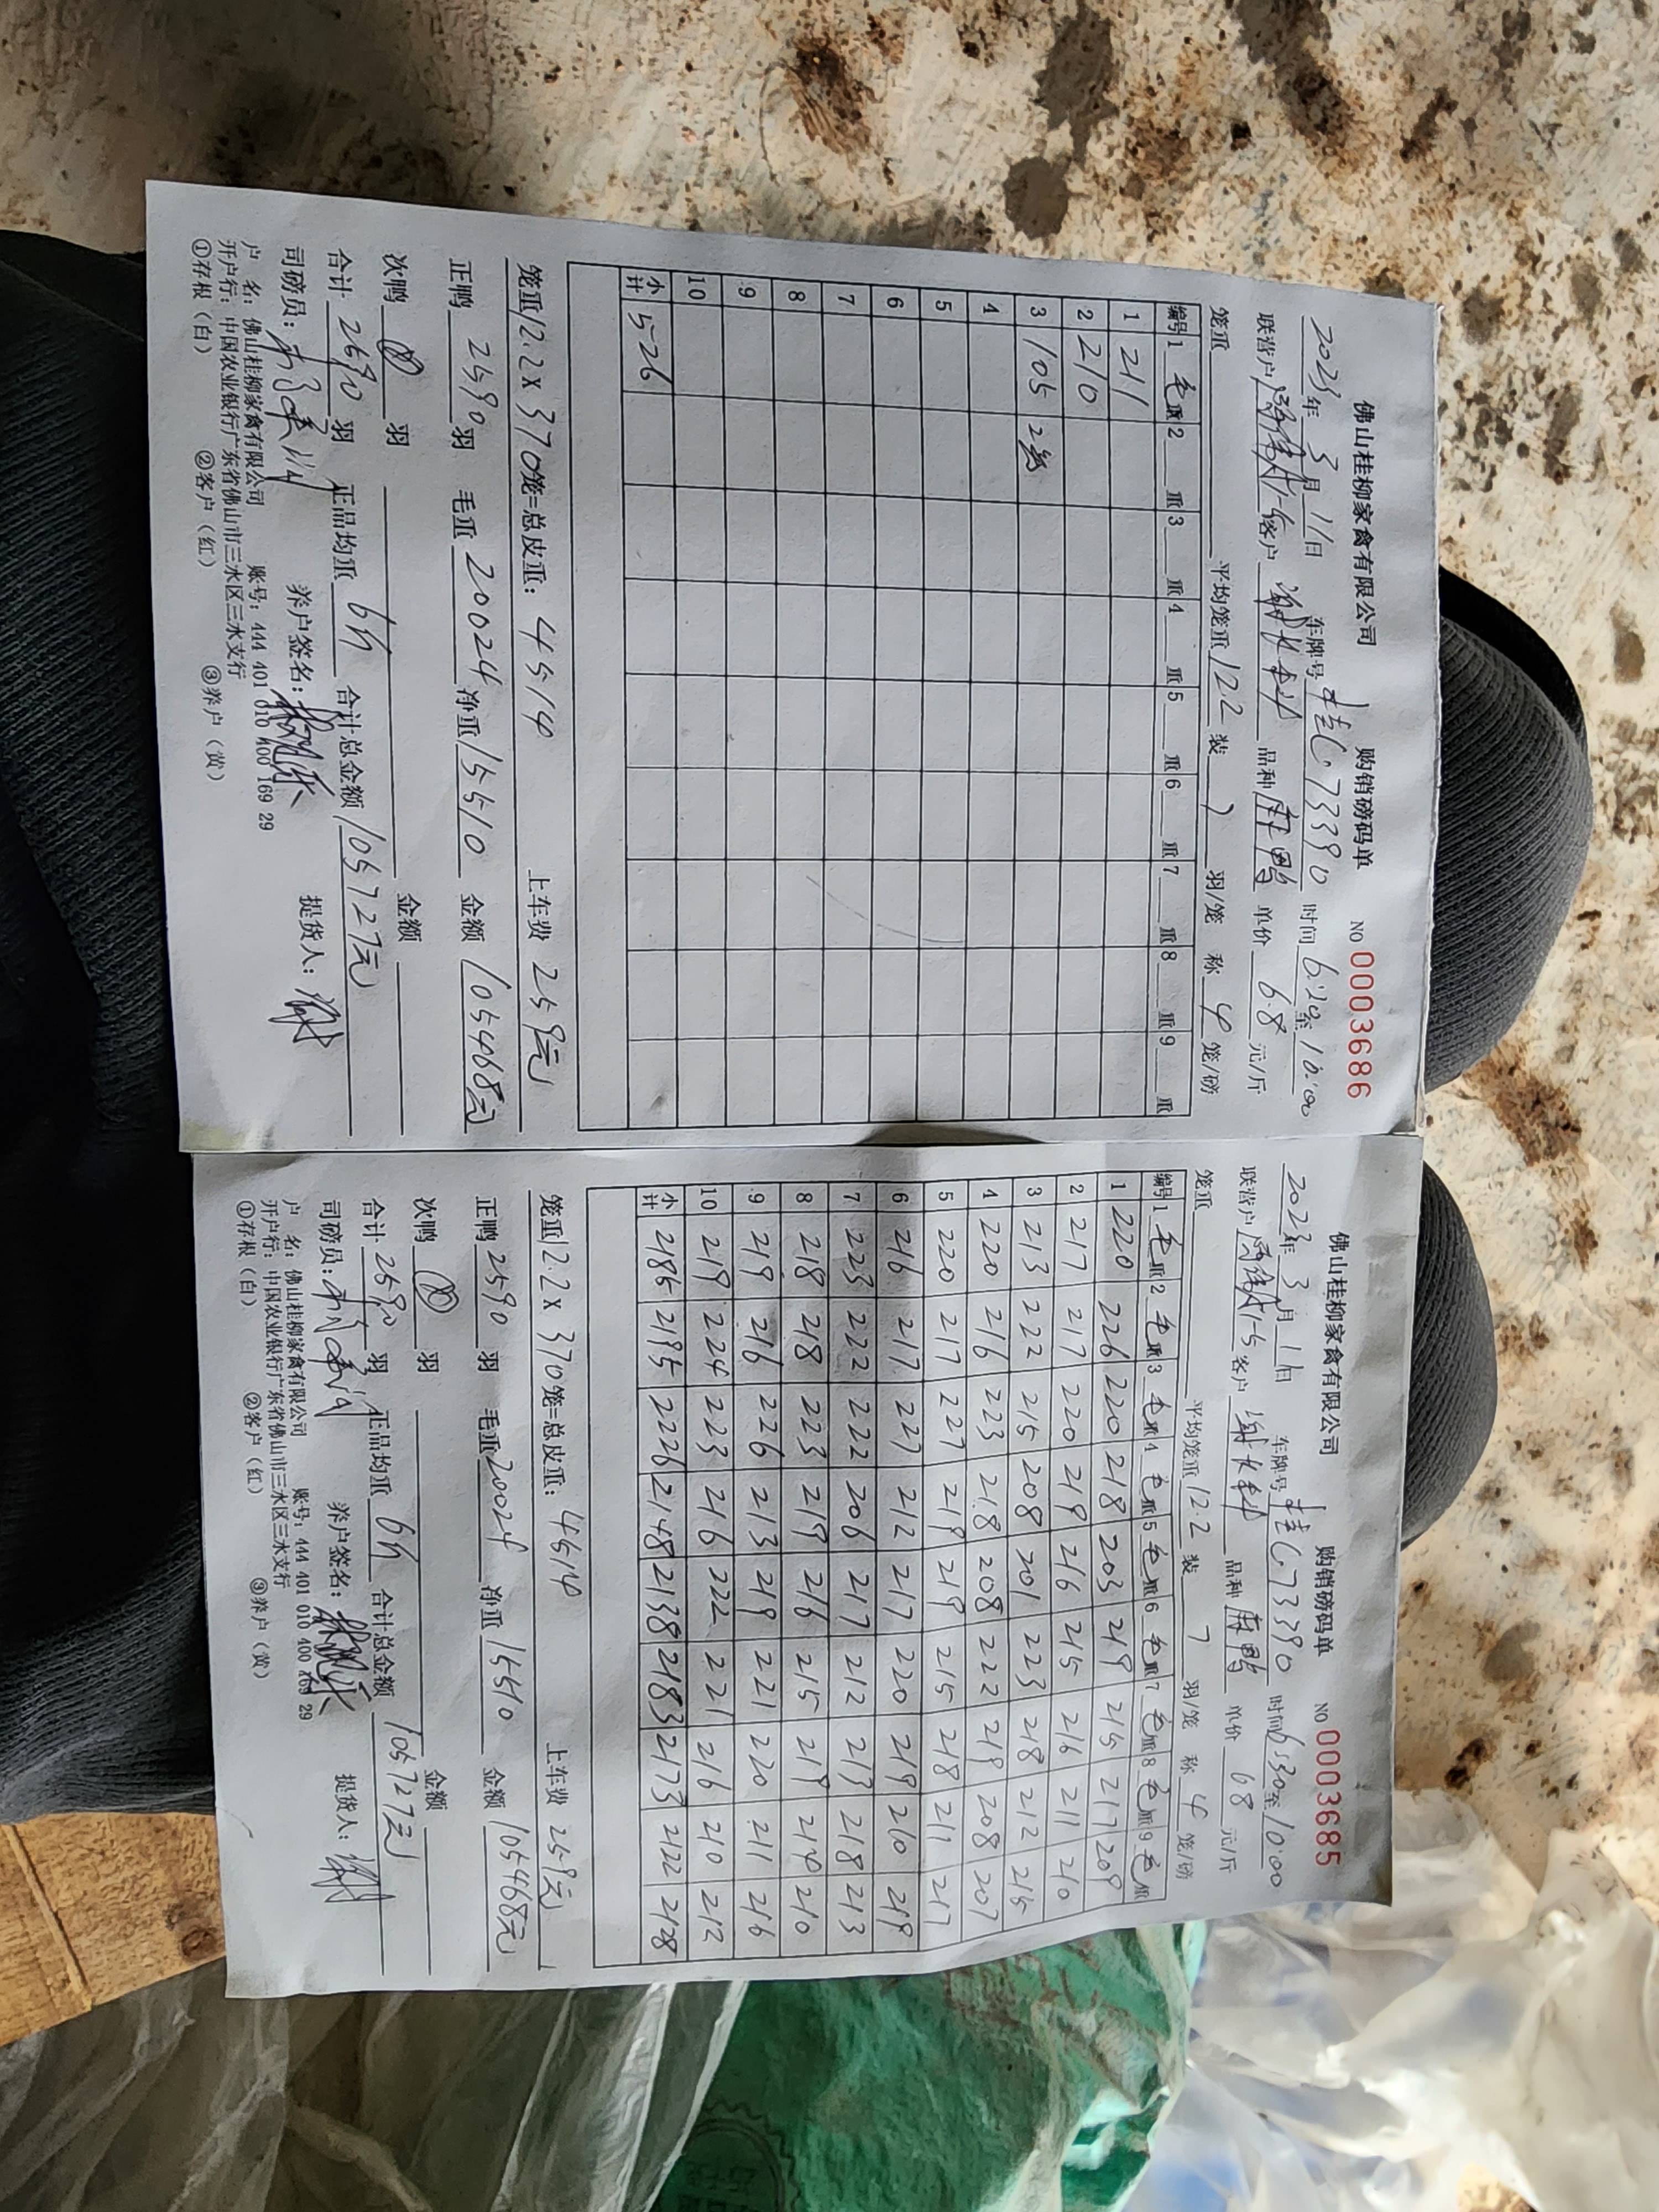 佛山桂柳家禽有限公司 购销磅码单 NO 0003686
2023年 3月 11日 车牌号 桂C·73390 时间 6:20至 10:00
联营户 客户 品种 麻鸭 单价 6.8 元/斤
笼重 平均笼重 12.2 装 7 羽/笼 称 4 笼/磅
编号 1 毛重 2 重 3 重 4 重 5 重 6 重 7 重 8 重 9 重
1 211
2 210
3 105 2笼
4
5
6
7
8
9
10
小计 526
笼重12.2×370笼=总皮重: 4514 上车费 259元
正鸭 2590 羽 毛重 20024 净重 15510 金额 105468元
次鸭 羽 金额
合计 2590 羽 正品均重 6斤 合计总金额 105727元
司磅员: 养户签名: 提货人: 谢
户 名: 佛山桂柳家禽有限公司 账号: 444 401 010 400 169 29
开户行: 中国农业银行广东省佛山市三水区三水支行
①存根(白) ②客户(红) ③养户(黄)
佛山桂柳家禽有限公司 购销磅码单 NO 0003685
2023年 3月 11日 车牌号 桂C·73390 时间 6:30至 10:00
联营户 客户 品种 麻鸭 单价 6.8 元/斤
笼重 平均笼重 12.2 装 7 羽/笼 称 4 笼/磅
编号 1 毛重 2 毛重 3 毛重 4 毛重 5 毛重 6 毛重 7 毛重 8 毛重 9 毛重
1 220 226 220 218 203 219 215 217 209
2 217 217 220 219 216 215 216 211 210
3 213 222 215 208 201 223 218 212 215
4 220 216 223 218 208 222 219 208 207
5 220 217 227 219 219 215 218 211 217
6 216 217 227 212 217 220 219 210 219
7 223 222 222 206 217 212 213 218 213
8 218 218 223 219 216 215 219 214 210
9 219 216 226 213 219 221 220 211 216
10 219 224 223 216 222 221 216 210 212
小计 2185 2195 2226 2148 2138 2183 2173 2122 2128
笼重12.2×370笼=总皮重: 4514 上车费 259元
正鸭 2590 羽 毛重 20024 净重 15510 金额 105468元
次鸭 羽 金额
合计 2590 羽 正品均重 6斤 合计总金额 105727元
司磅员: 养户签名: 提货人: 谢
户 名: 佛山桂柳家禽有限公司 账号: 444 401 010 400 169 29
开户行: 中国农业银行广东省佛山市三水区三水支行
①存根(白) ②客户(红) ③养户(黄)